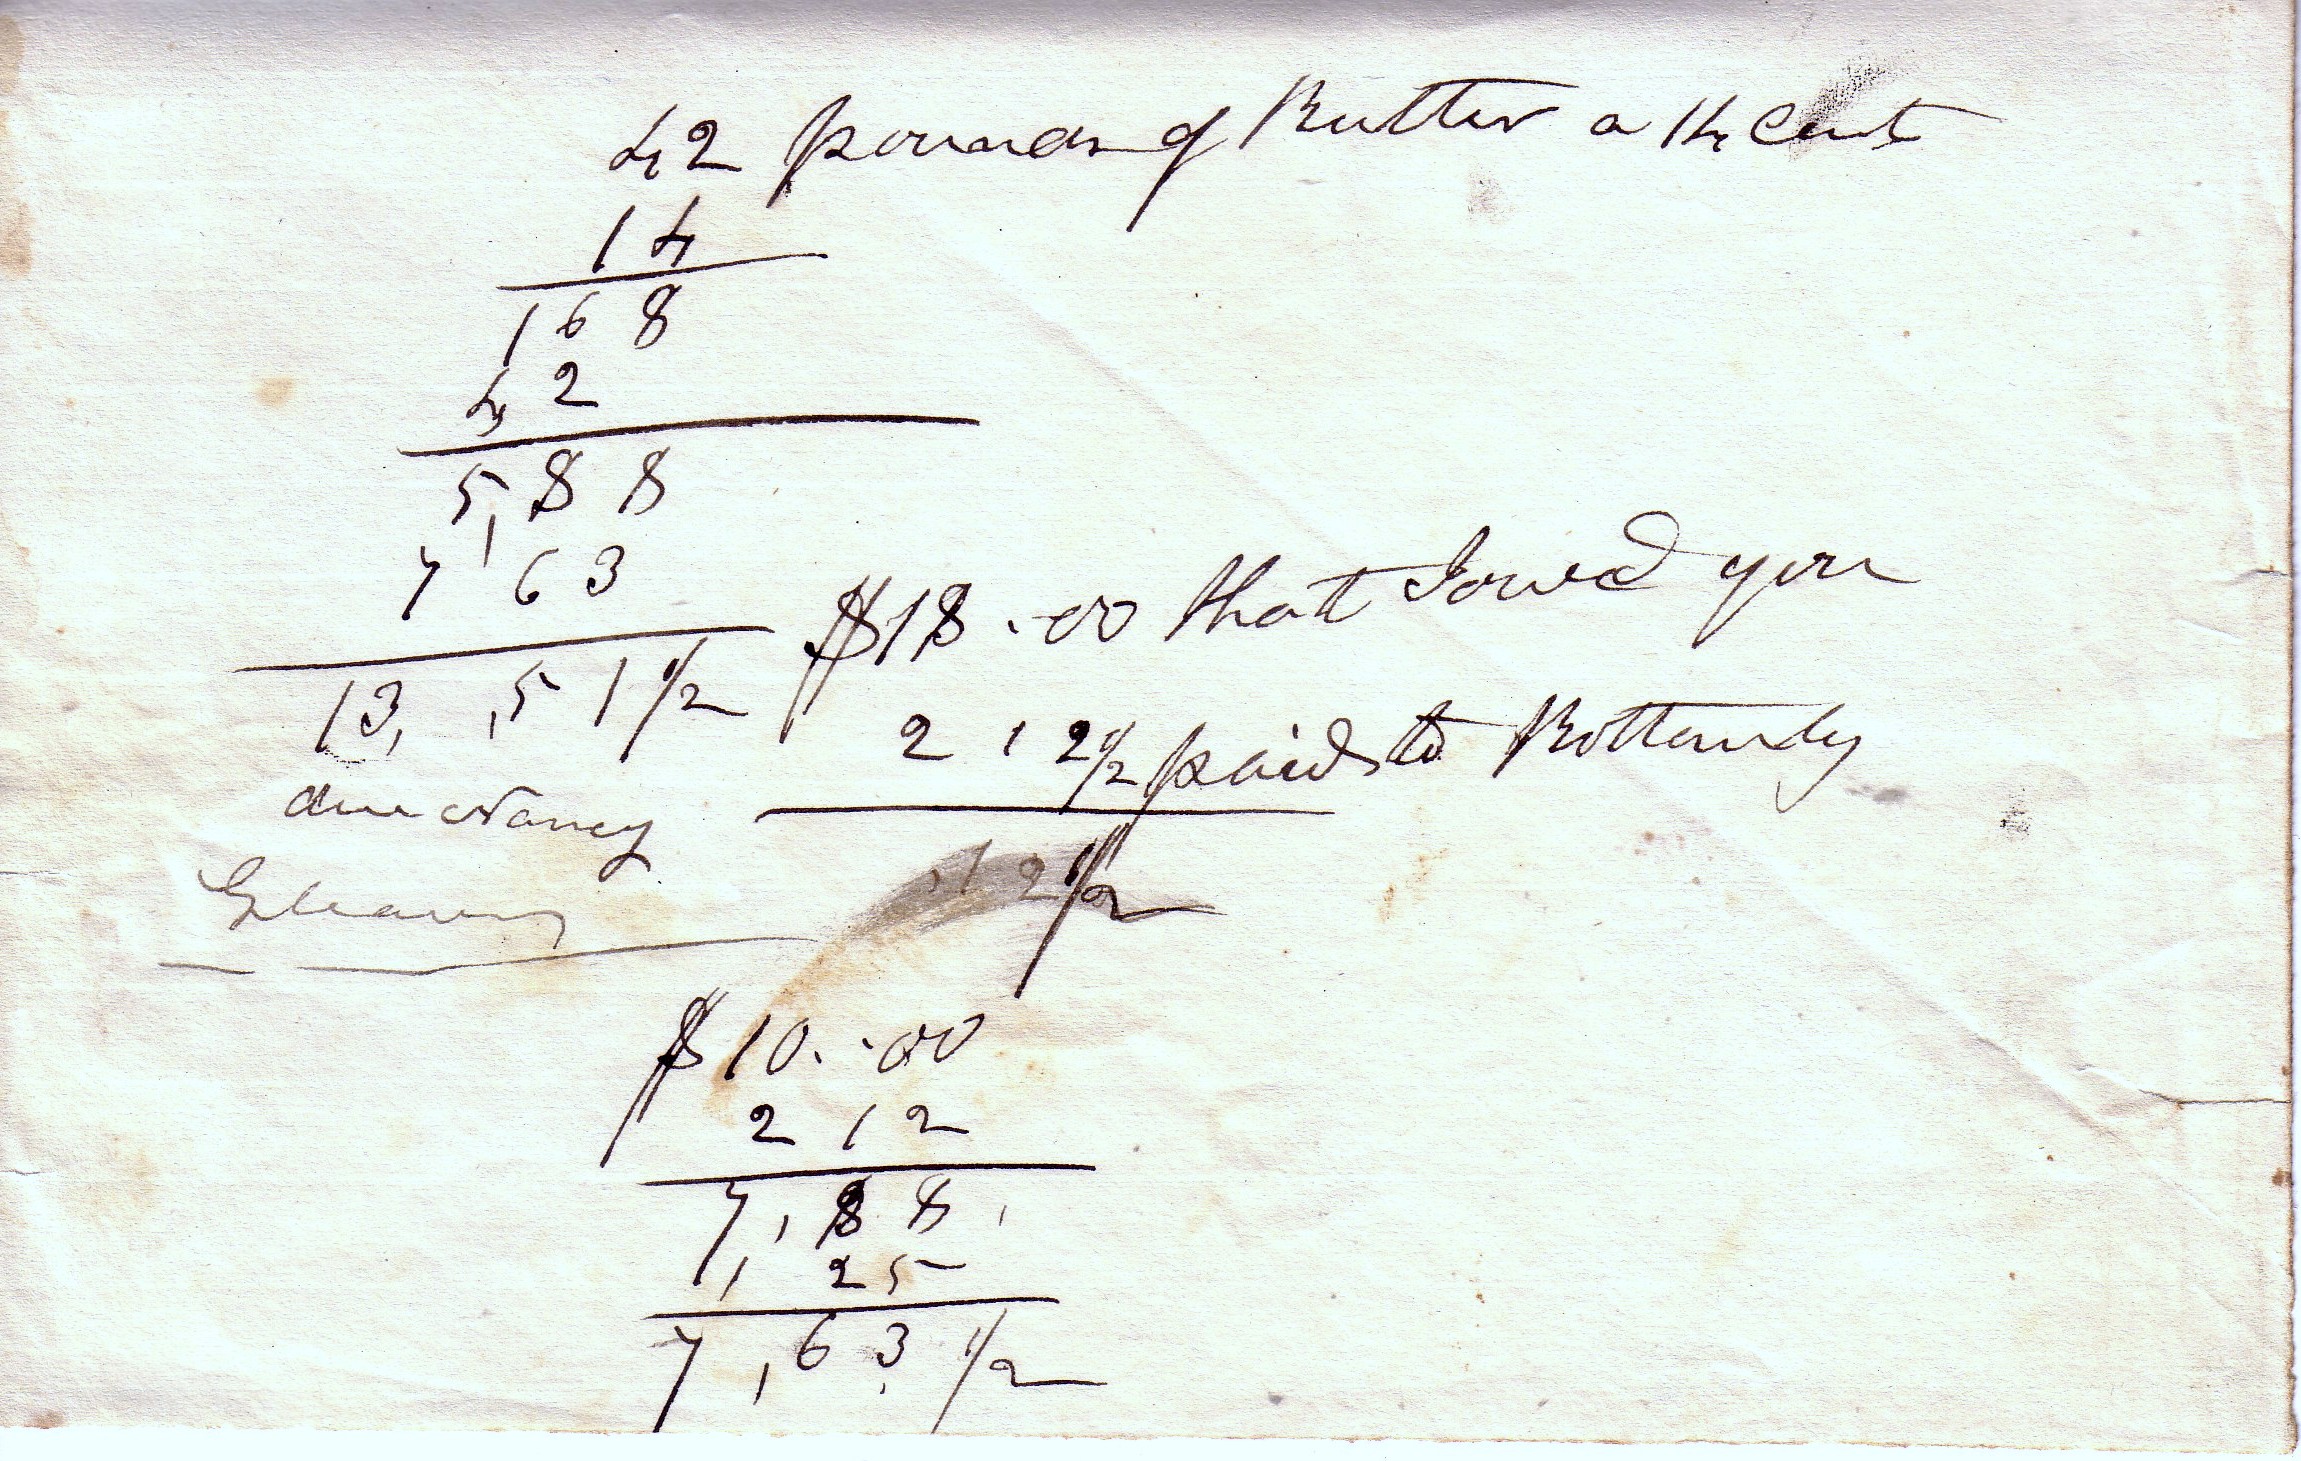 42 pounds of Butter a 14 Cent
14
168
42
5,88
7 63
13, ,51 1/2
due Nancy
Gleaves
$18.00 that I owed you
2 12 1/2 paid to
,12 1/2
$10..00
2 12
7,88
, 25
7,63 1/2